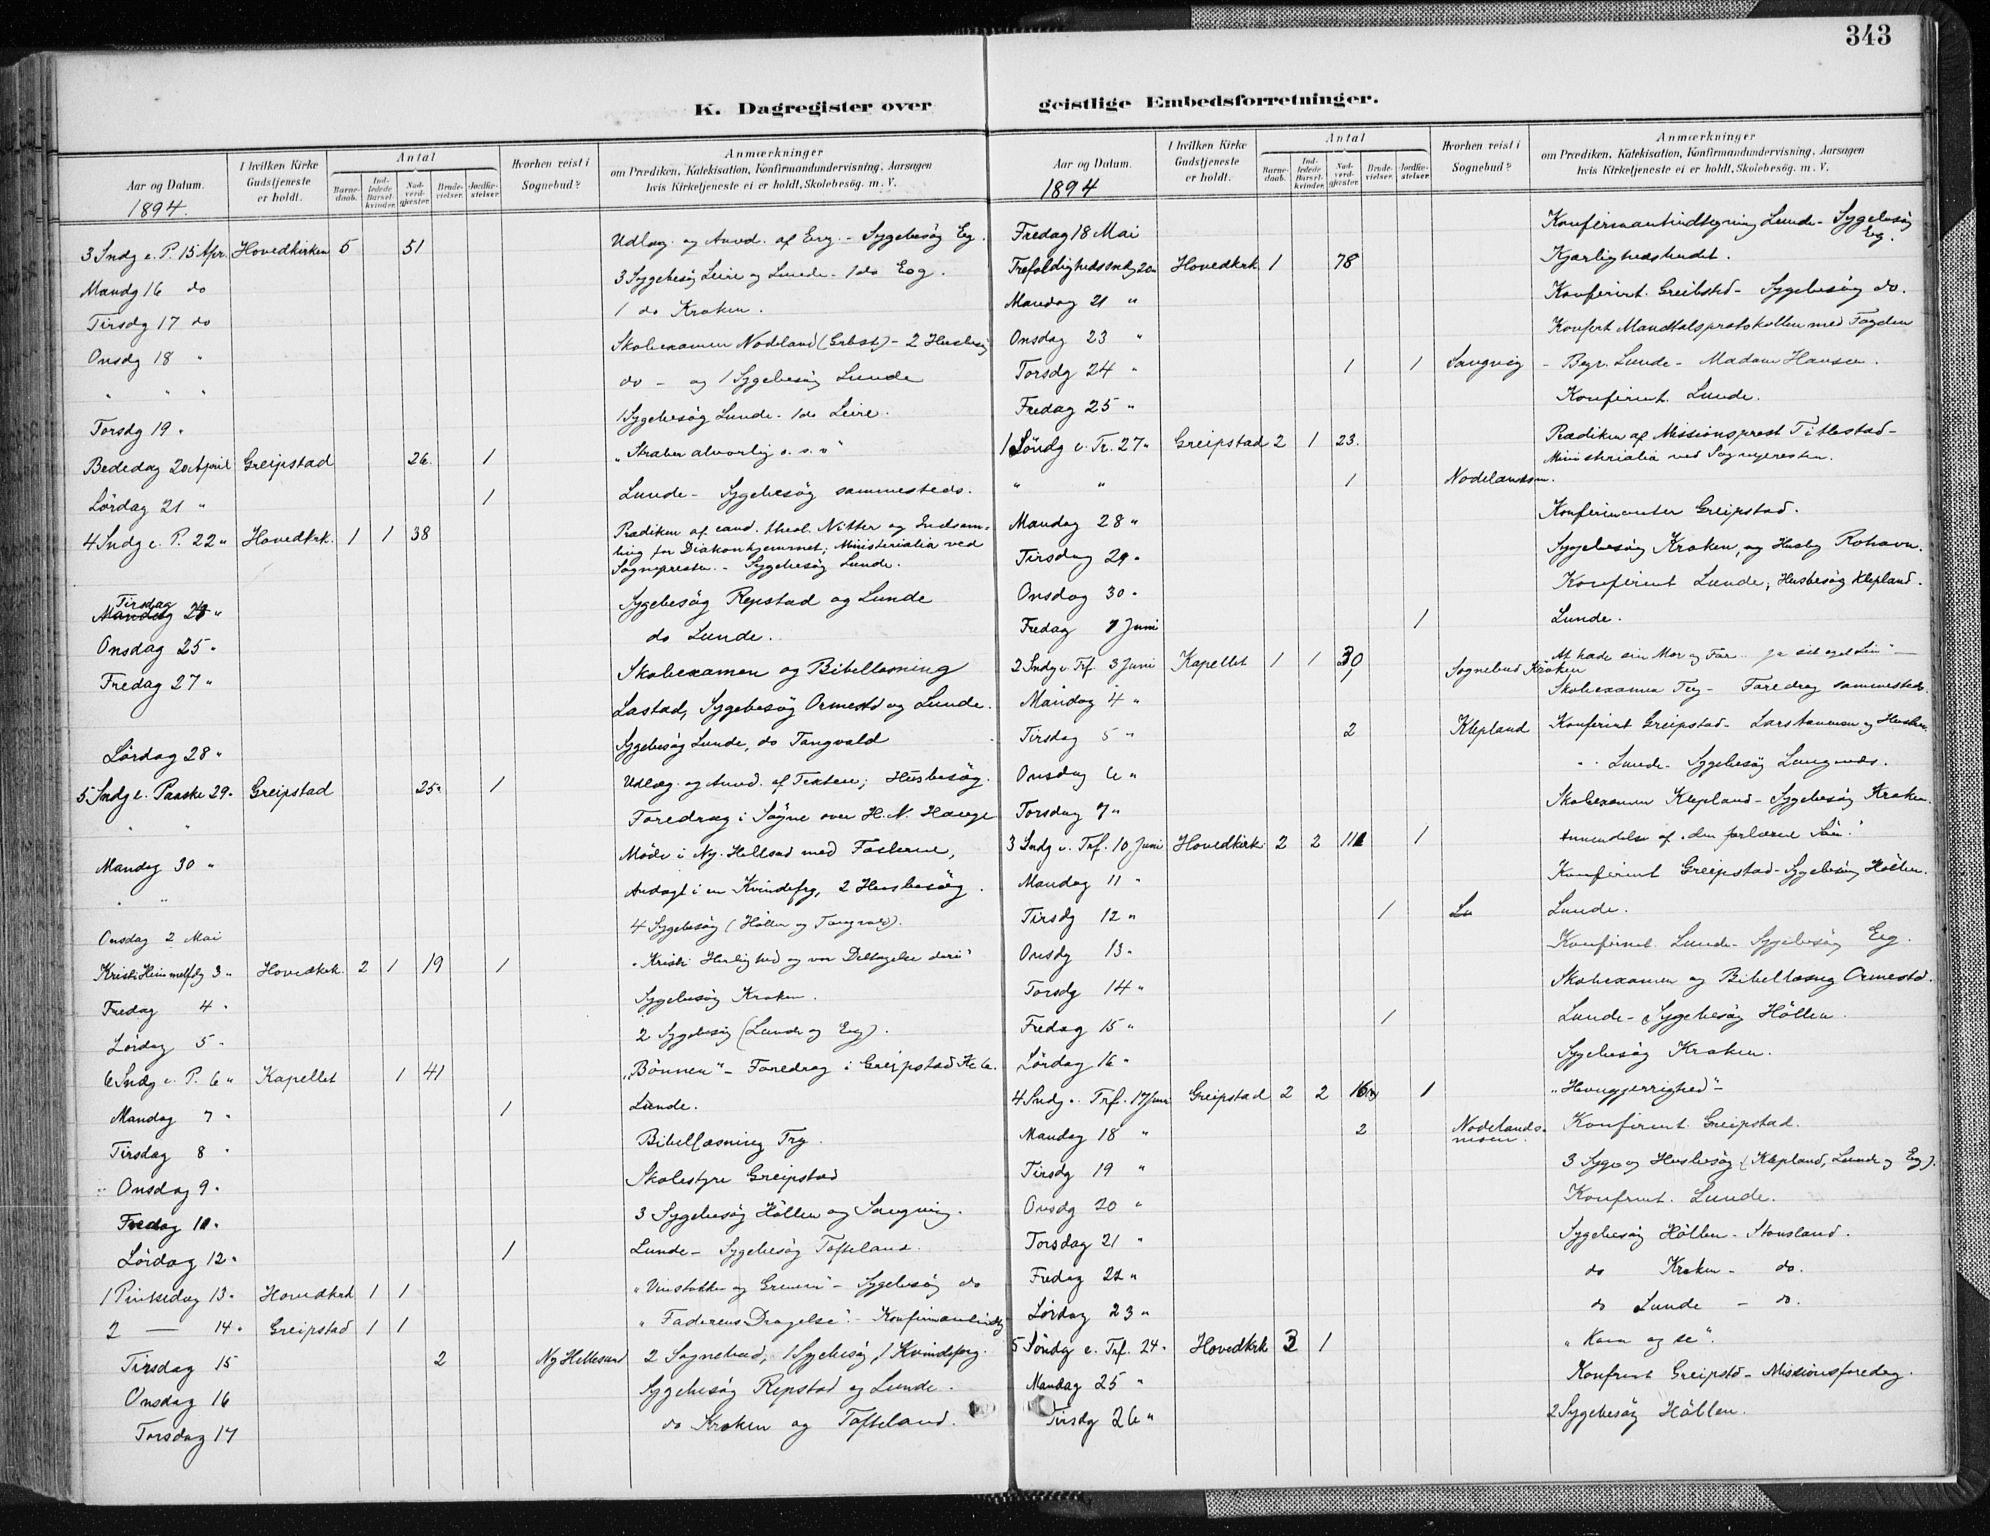 343
K. Dagregister over geistlige Embedsforretninger.
Aar og Datum.
I hvilken Kirke Gudstjeneste er holdt.
Antal
Barnedaab.
Indledede Barselkvinder.
Nadverdgjæster.
Brudevielser.
Jordfæstelser.
Hvorhen reist i Sognebud?
Anmærkninger
om Prædiken, Katekisation, Konfirmandundervisning, Aarsagen hvis Kirketjeneste ei er holdt, Skolebesøg. m. V.
1894.
3 Sndg e. P. 15 Apr. Hovedkirken 5 51 Udlæg. og Anvd. af Evg. - Sygebesøg Eg.
Mandg 16 do 3 Sygebesøg Leire og Lunde - 1 do Eeg.
Tirsdg 17 do 1 do Kroken.
Onsdg 18 " Skolexamen Nodeland (Grbst) - 2 Husbesøg
" " " do - og 1 Sygebesøg Lunde
Torsdg 19 " 1 Sygebesøg Lunde - 1 do Leire.
Bededag 20 April Greipstad 26. 1 "Stræber alvorlig o. s. v"
Lördag 21 " 1 Lunde - Sygebesøg sammesteds.
4 Sndg e. P. 22 " Hovedkrk. 1 1 38 Prædiken af cand. theol. Nitter og Indsam-
ling for Diakonhjemmet; Ministerialia ved
Sognepresten. - Sygebesøg Lunde.
Tirsdag
Mandag 24 " Sygebesøg Repstad og Lunde
Onsdag 25 " do Lunde.
Fredag 27 " Skolexamen og Bibellæsning
Lastad, Sygebesøg Ormestd og Lunde.
Lördag 28 " Sygebesøg Lunde, do Tangvald
5 Sndg e. Paaske 29 " Greipstad 25 " 1 Udlæg. og Anvd. af Texten; Husbesøg.
" " Foredrag i Søgne over H. N. Hauge
Mandag 30 " Möde i Ny-Hellesud med Fadderne,
" " Andagt i en Kvindefrg, 2 Husbesøg.
Onsdag 2 Mai 4 Sygebesøg (Höllen og Tangvald).
Kristi Himmelfdg 3 " Hovedkrk. 2 1 19 1 "Kristi Herlighed og vor Deltagelse deri"
Fredag 4 " Sygebesøg Kroken.
Lördag 5 " 2 Sygebesøg (Lunde og Eeg).
6 Sndg e. P. 6 " Kapellet 1 41 "Bönnen" - Foredrag i Greipstad
Mandag 7 " 1 Lunde.
Tirsdag 8 " Bibellæsning Try.
Onsdag 9 " Skolestyre Greipstad
Fredag 11 " 3 Sygebesøg Höllen og Sangvig.
Lördag 12 " 1 Lunde - Sygebesøg Tofteland.
1 Pinksedag 13 " Hovedkrk 1 1 "Vinstokken og Grenen" - Sygebesøg do
2 — 14 " Greipstad 1 1 "Faderens Dragelse". - Konfirmantindtg
Tirsdag 15 2 Ny Hellesund 2 Sognebud, 1 Sygebesøg, 1 Kvindeforg.
Onsdag 16 Sygebesøg Repstad og Lunde.
Torsdag 17 do Kroken og Tofteland.
Aar og Datum.
I hvilken Kirke Gudstjeneste er holdt.
Antal
Barnedaab.
Indledede Barselkvinder.
Nadverdgjæster.
Brudevielser.
Jordfæstelser.
Hvorhen reist i Sognebud?
Anmærkninger
om Prædiken, Katekisation, Konfirmandundervisning, Aarsagen hvis Kirketjeneste ei er holdt, Skolebesøg. m. V.
1894
Fredag 18 Mai Konfirmantindtegning Lunde - Sygebesøg Eeg.
Trefoldighedssndg 20 " Hovedkrk 1 78 Kjærlighedsbudet.
Mandag 21 " Konfirmt. Greibsted - Sygebesøg do.
Onsdag 23 " Konfert Mandtalsprotokollen med Fogden
Torsdg 24 " 1 1 Sangvig - Begr. Lunde - Madam Hansen.
Fredag 25 " Konfirmt. Lunde.
1 Söndg e. Tr. 27 " Greipstad 2 1 23. Prædiken af Missionsprest Titlestad -
Ministerialia ved Sognepresten.
" " 1 Nodelandsm.
Mandag 28 " Konfirmanter Greipstad.
Tirsdag 29 " Sygebesøg Kroken, og Husbsg Rohavn.
Onsdag 30 " Konfirmt Lunde, Husbesøg Klepland.
Fredag 1 Juni 1 Lunde.
2 Sndg e. Trf. 3 Juni Kapellet 1 1 30 Sognebud Kroken "At hade sin Mor og Far - ja sit eget Liv" -
Mandag 4 " Skolexamen Try - Foredrag sammesteds.
Tirsdag 5 " 2 Klepland Konfirmt Greipstad -
Onsdag 6 " " Lunde - Sygebesøg Langenes.
Torsdag 7 " Skolexamen Klepland - Sygebesøg Kroken.
3 Sndg e. Trf. 10 Juni Hovedkirk 2 2 111 1 Anvendelse af "den forlorne Sön".
Mandag 11 " Konfirmt Greipstad - Sygebesøg Höllen.
Tirsdg 12 " 1 Lu Lunde.
Onsdg 13 " Konfirmt. Lunde - Sygebesøg Eeg.
Torsdg 14 " Skolexamen og Bibellæsng Ormestd.
Fredag 15 " 1 Lunde - Sygebesøg Höllen.
Lördag 16 " Sygebesøg Kroken.
4 Sndg e. Trf. 17 Juni Greipstad 2 2 16 1 "Havnggjerrighed" -
Mandag 18 " 2 Nodelands-moen. Konfirmt. Greipstad.
Tirsdg 19 " 3 Syge og Husbesøg (Klepland, Lunde og Eeg).
Onsdg 20 " Konfrmt. Lunde.
Torsdag 21 " Sygebesøg Höllen - Stousland.
Fredag 22 " do Kroken - do.
Lördag 23 " do Lunde - do.
5 Söndg e. Trf. 24 " Hovedkrk 3 1 "Kom og se".
Mandag 25 " Konfrmt Greipstd - Missionsforedrg.
Tirsdg 26 " 2 Sygebesøg Höllen.